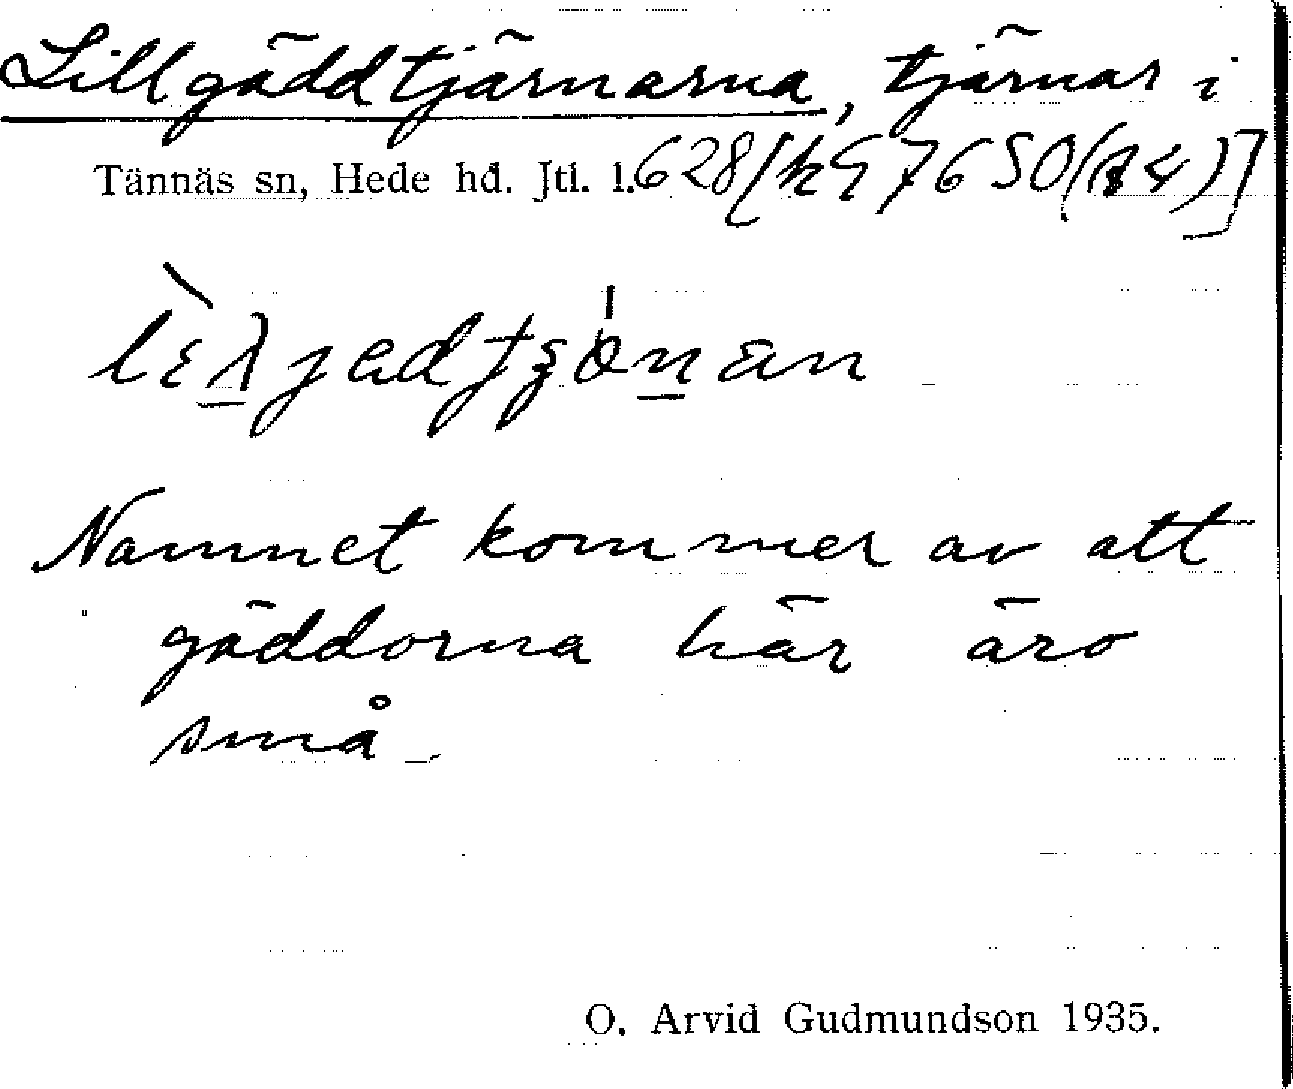 Lillgäddtjärnarna, tjärnar i
Tännäs sn, Hede hd. Jtl. l. 628
Namnet kommer av att
gäddorna här äro
små.
O. Arvid Gudmundson 1935.